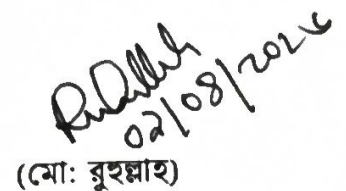 ০২/০৪/২০২৬
(মো: রুহুল্লাহ)